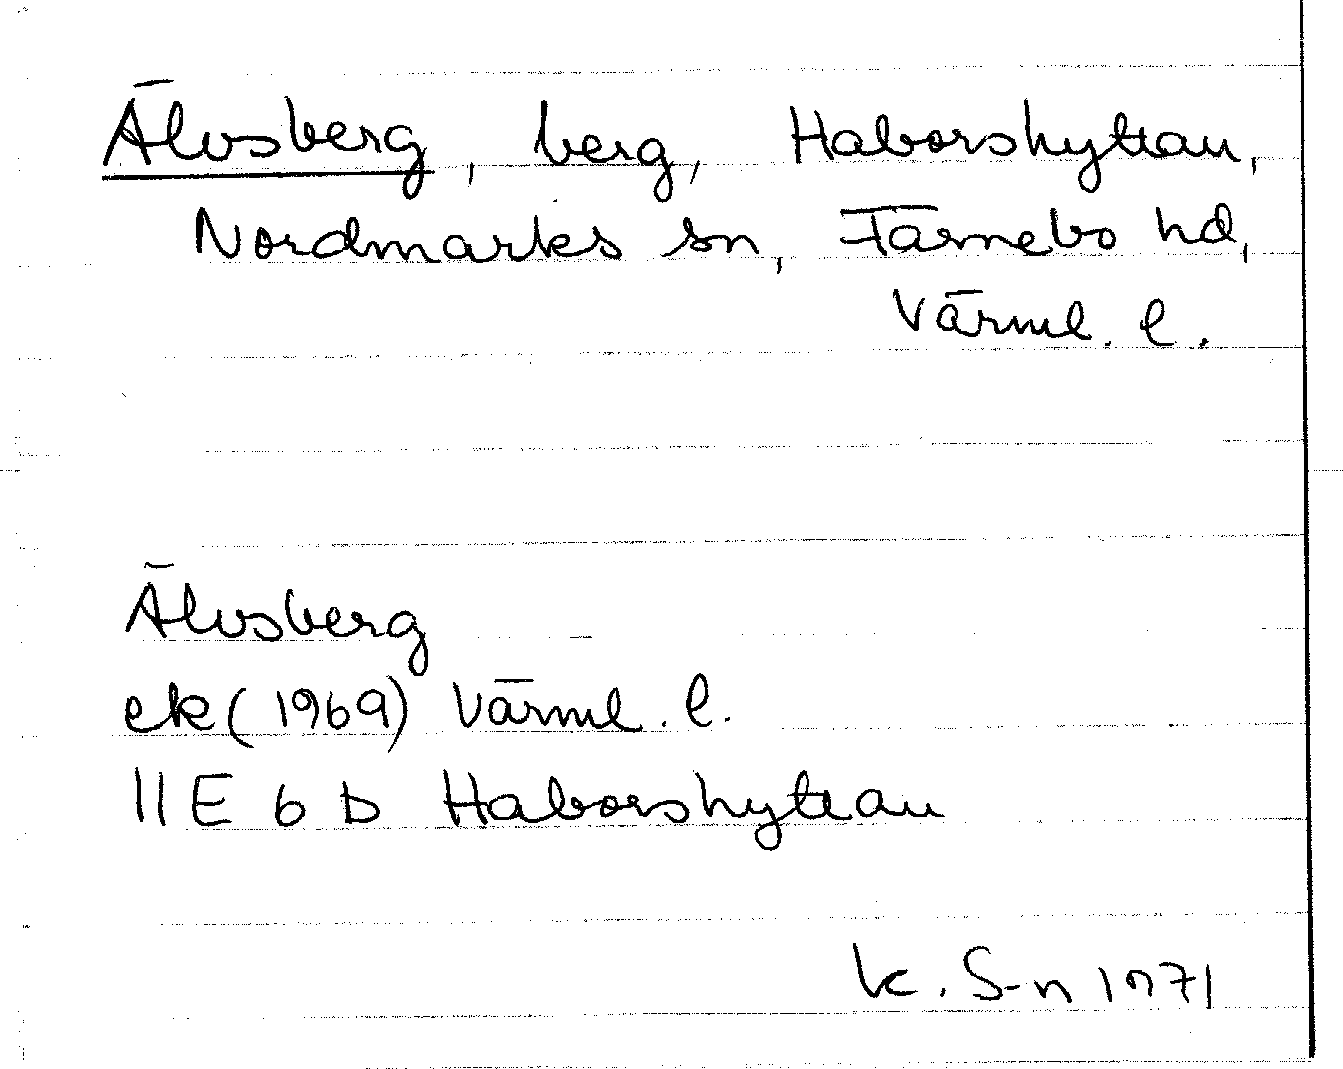 Älvsberg, berg, Haborshyttan,
Nordmarks sn, Färnebo hd,
Värml. l.
Älvsberg
ek (1969) Värml. l.
11E 6 b Haborshyttan
K. S-n 1971